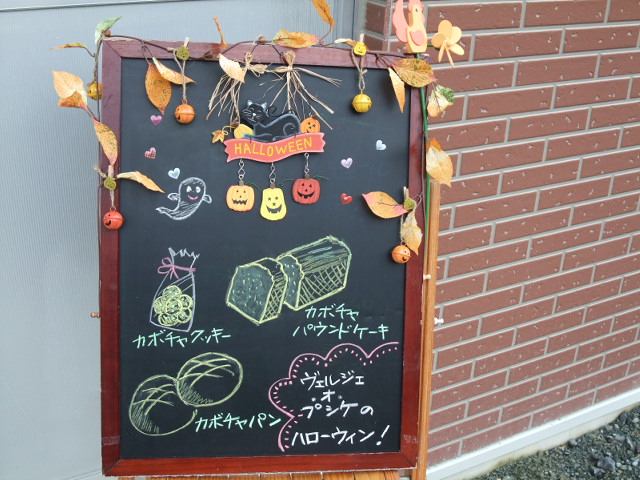 HALLOWEEN
カボチャクッキー
カボチャ
パウンドケーキ
カボチャパン
ヴェルジェ
・オ・
プシケの
ハローウィン!